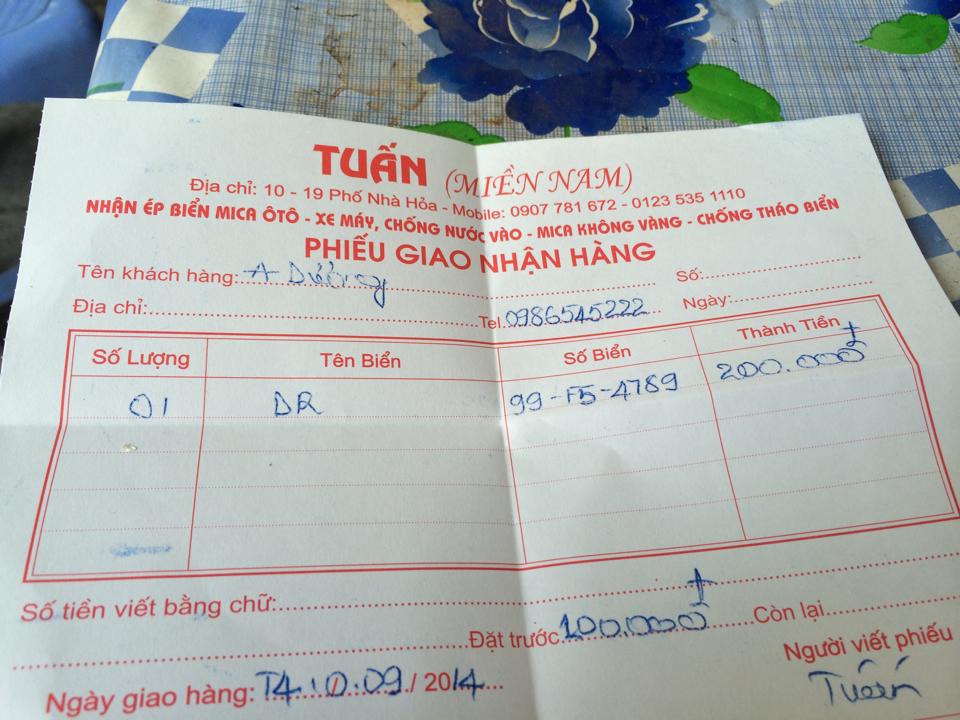 TUẤN (MIỀN NAM)
Địa chỉ: 10 - 19 Phố Nhà Hỏa - Mobile: 0907 781 672 - 0123 535 1110
NHẬN ÉP BIỂN MICA ÔTÔ - XE MÁY, CHỐNG NƯỚC VÀO - MICA KHÔNG VÀNG - CHỐNG THÁO BIỂN
PHIẾU GIAO NHẬN HÀNG
Tên khách hàng: A Dường Số:
Địa chỉ: Tel 0986545222 Ngày:
Số Lượng Tên Biển Số Biển Thành Tiền
01 DR 99-F5-4789 200.000đ
Số tiền viết bằng chữ:
Đặt trước 100.000đ Còn lại
Người viết phiếu
Ngày giao hàng: T4 10.09 / 2014
Tuấn